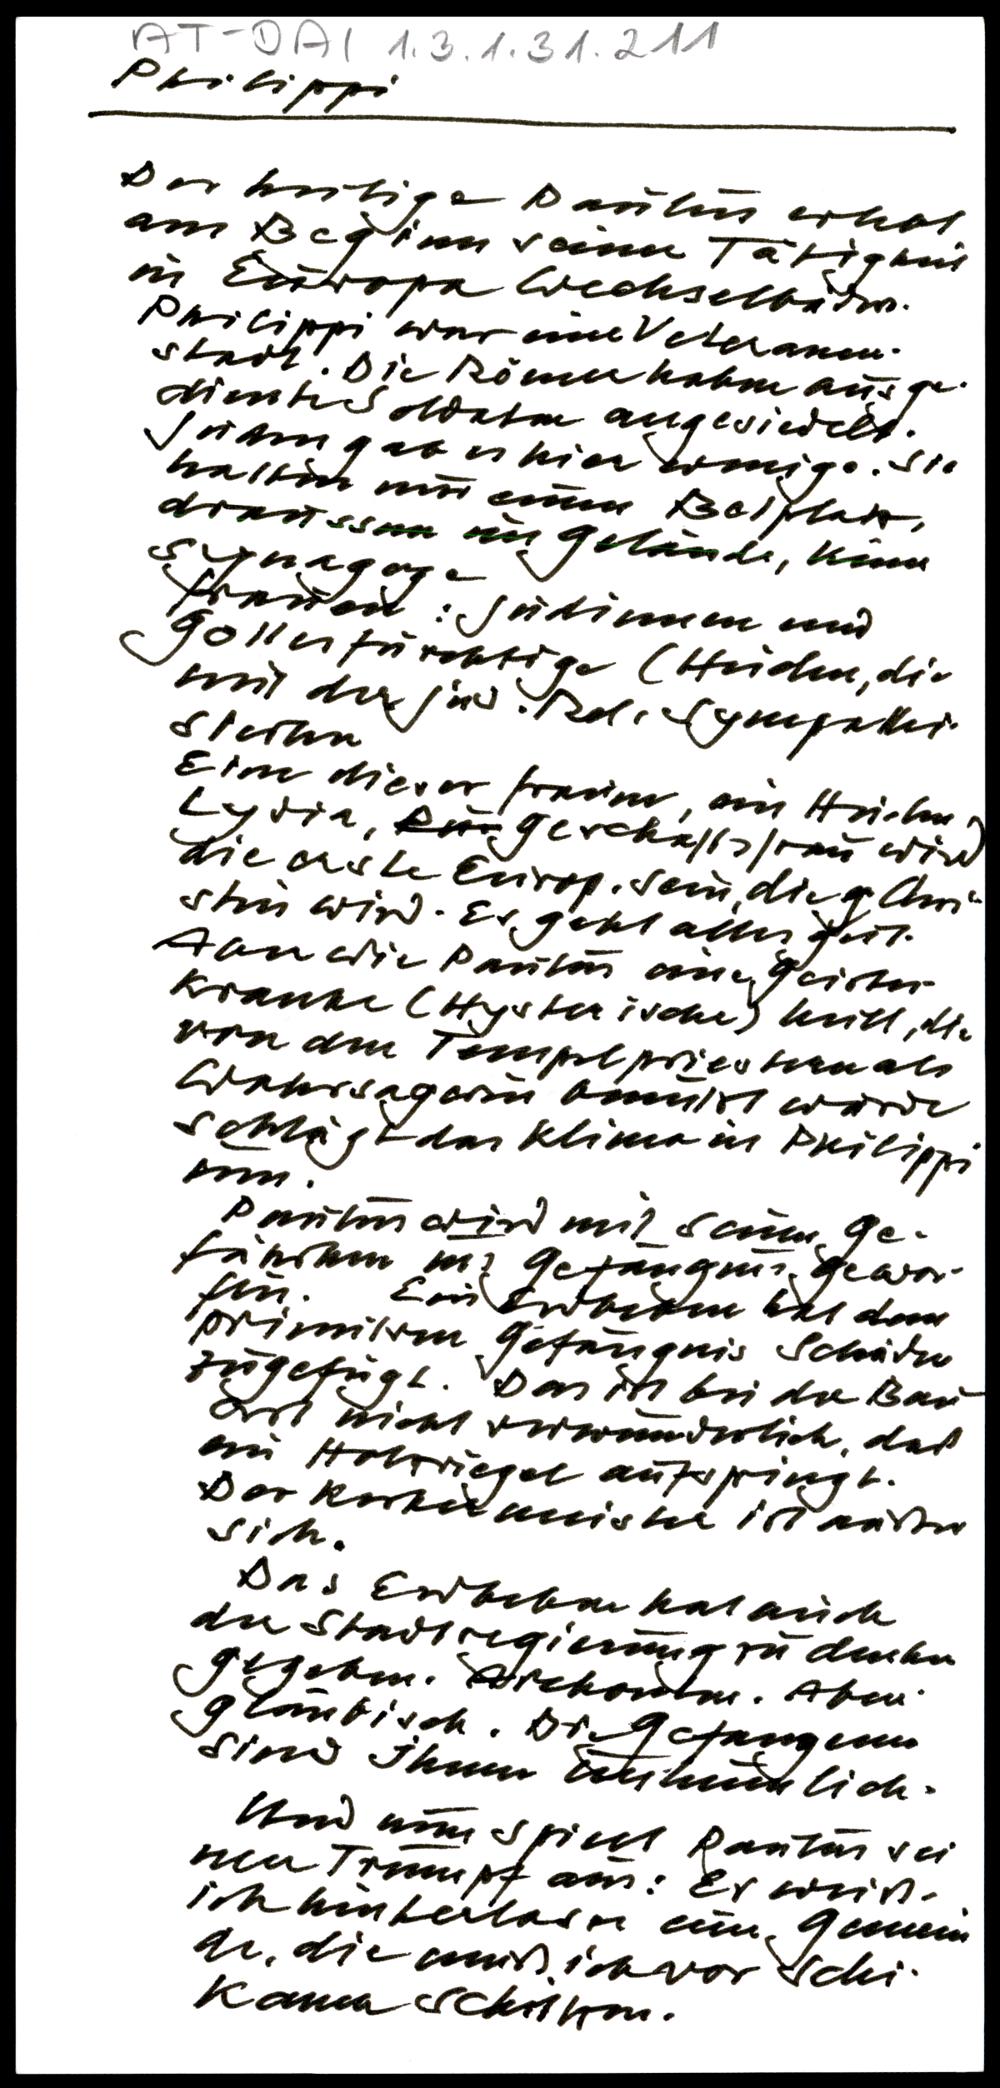 AT-DAI 1.3.1.31.211
Philippi
Der heilige Paulus erhol
am Beginn seiner Tätigkeit
in Europa Wechselbäder.
Philippi war eine Veteranen-
stadt. Die Römer haben ausge-
diente Soldaten angesiedelt.
Juden gab es hier wenige. Sie
hatten nur einen Betplatz,
draussen im Gelände, keine
Synagoge
Frauen: Jüdinnen und
Gottesfürchtige (Heiden, die
mit der jüd. Rel. Sympathi-
sierten
Eine dieser Frauen, ein Heidin,
Lydia, Geschäftsfrau wird
die erste Europ. sein, die Chri-
stin wird. Es geht alles gut.
Aber wie Paulus eine Geistes-
kranke (Hysterische) heilt, die
von den Tempelpriestern als
Wahrsagerin benützt wurde
schlägt das Klima in Philippi
um.
Paulus wird mit seinen Ge-
fährten ins Gefängnis gewor-
fen. Ein Erdbeben hat dem
primitiven Gefängnis Schäden
zugefügt. Das ist bei der Bau
art nicht verwunderlich, daß
ein Holzriegel aufspringt.
Der Kerkermeister ist außer
sich.
Das Erdbeben hat auch
der Stadtregierung zu denken
gegeben. Archonten. Aber-
gläubisch. Die Gefangenen
sind ihnen unheimlich.
Und nun spielt Paulus sei
nen Trumpf aus: Er weiß.
ich hinterlasse eine Gemein
de, die muß ich vor Schi-
kanen schützen.